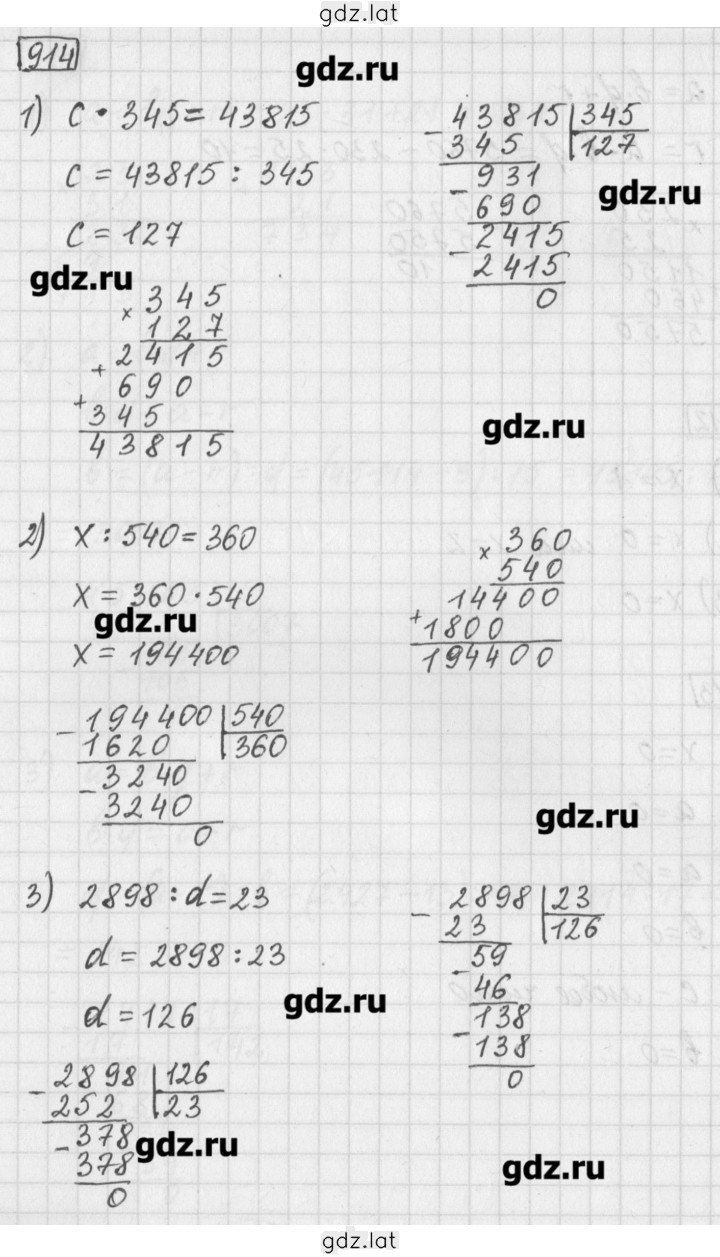 gdz.lat
914
gdz.ru
1) c · 345 = 43815
c = 43815 : 345
c = 127
- 43815 | 345
345 | 127
- 931
690
- 2415
2415
0
gdz.ru
gdz.ru
× 345
127
+ 2415
+ 690
345
43815
gdz.ru
2) x : 540 = 360
x = 360 · 540
gdz.ru
x = 194400
× 360
540
+ 14400
1800
194400
- 194400 | 540
1620 | 360
- 3240
3240
0
gdz.ru
3) 2898 : d = 23
d = 2898 : 23
d = 126
gdz.ru
- 2898 | 23
23 | 126
- 59
46
- 138
138
0
- 2898 | 126
252 | 23
- 378
378
0
gdz.ru
gdz.ru
gdz.lat